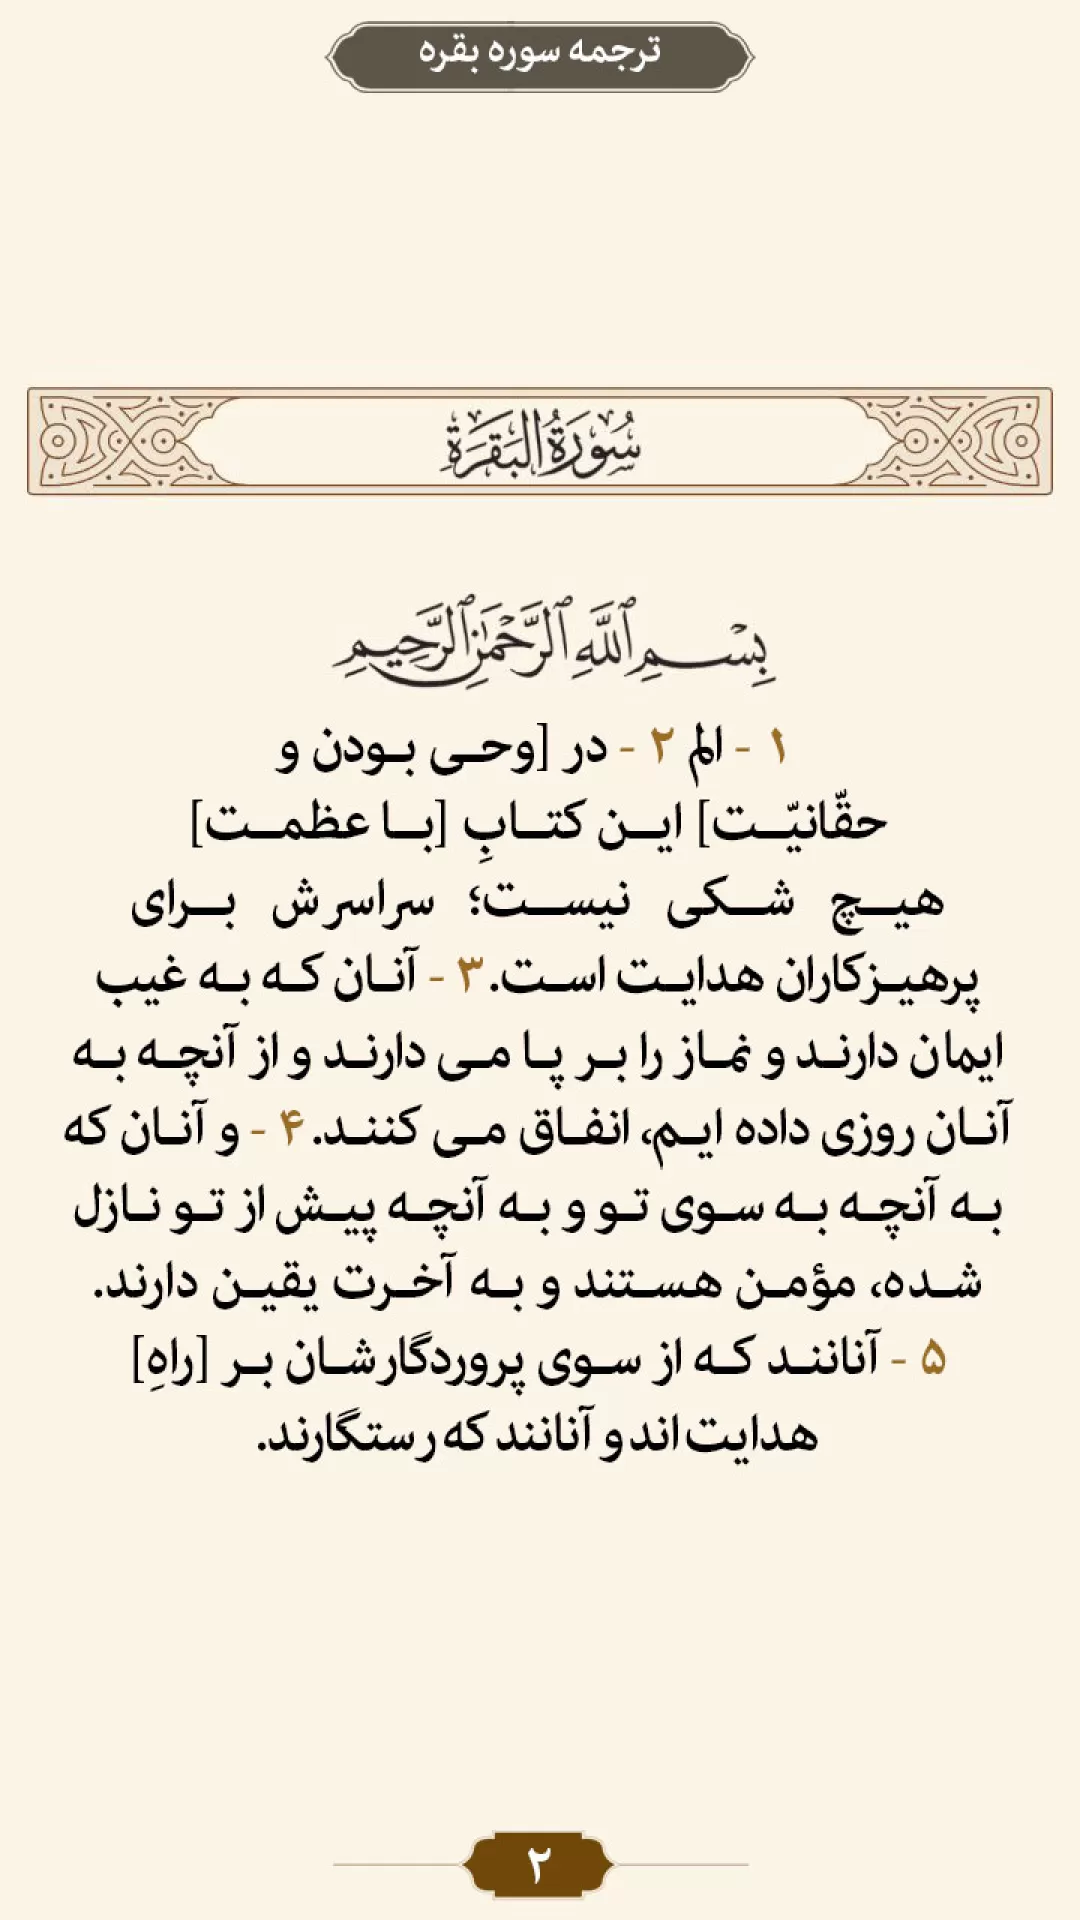 ترجمه سوره بقره
سُورَةُ البَقَرَة
بِسْمِ ٱللَّهِ ٱلرَّحْمَٰنِ ٱلرَّحِيمِ
۱ - الم ۲ - در [وحی بودن و
حقّانیّت] این کتابِ [با عظمت]
هیچ شکی نیست؛ سراسرش برای
پرهیزکاران هدایت است. ۳ - آنان که به غیب
ایمان دارند و نماز را بر پا می دارند و از آنچه به
آنان روزی داده ایم، انفاق می کنند. ۴ - و آنان که
به آنچه به سوی تو و به آنچه پیش از تو نازل
شده، مؤمن هستند و به آخرت یقین دارند.
۵ - آنانند که از سوی پروردگارشان بر [راهِ]
هدایت اند و آنانند که رستگارند.
۲